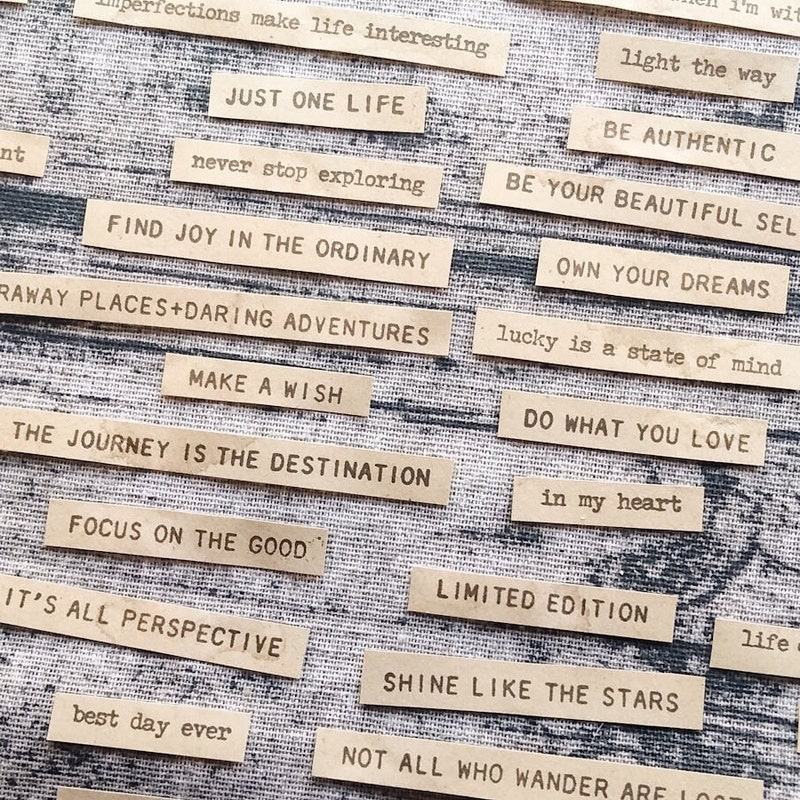 imperfections make life interesting
when i'm wit
light the way
JUST ONE LIFE
BE AUTHENTIC
nt
never stop exploring
BE YOUR BEAUTIFUL SEL
FIND JOY IN THE ORDINARY
OWN YOUR DREAMS
RAWAY PLACES+DARING ADVENTURES
lucky is a state of mind
MAKE A WISH
DO WHAT YOU LOVE
THE JOURNEY IS THE DESTINATION
in my heart
FOCUS ON THE GOOD
LIMITED EDITION
IT'S ALL PERSPECTIVE
life
SHINE LIKE THE STARS
best day ever
NOT ALL WHO WANDER ARE LOST